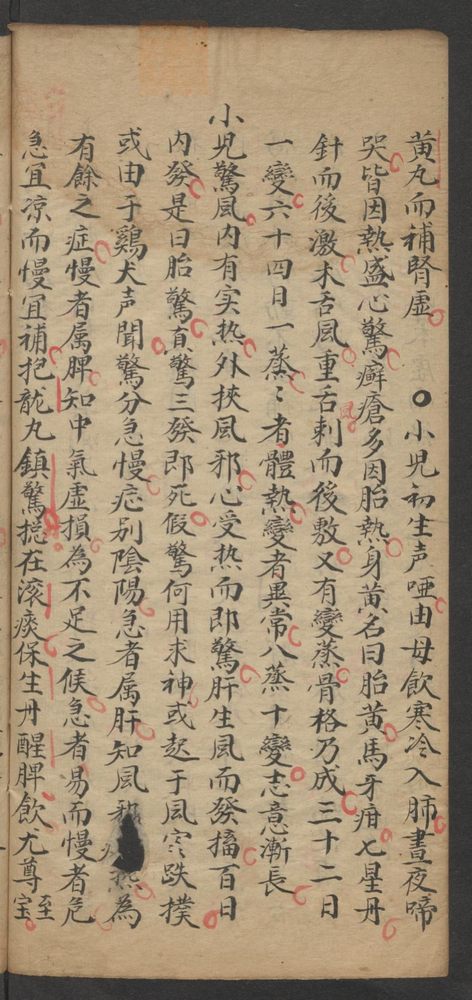 黄丸而補腎虚 ○小児初生声哑由母飲寒冷入肺晝夜啼
哭皆因熱盛心驚癬瘡多因胎熱身黄名曰胎黄馬牙疳七星丹
針而後激木舌風重舌刺而後敷又有變蒸骨格乃成三十二日
一變六十四日一蒸〻者體熱變者異常八蒸十變志意漸長
小児驚風内有实热外挾風邪心受热而即驚肝生風而發搐百日
内發是曰胎驚真驚三發即死假驚何用求神或起于風寒跌撲
或由于鷄犬声聞驚分急慢症别陰陽急者属肝知風邪 热為
有餘之症慢者属脾知中氣虚損為不足之候急者易而慢者危
急宜凉而慢宜補抱龍丸鎮驚揔在滚痰保生丹醒脾飲尤尊至宝